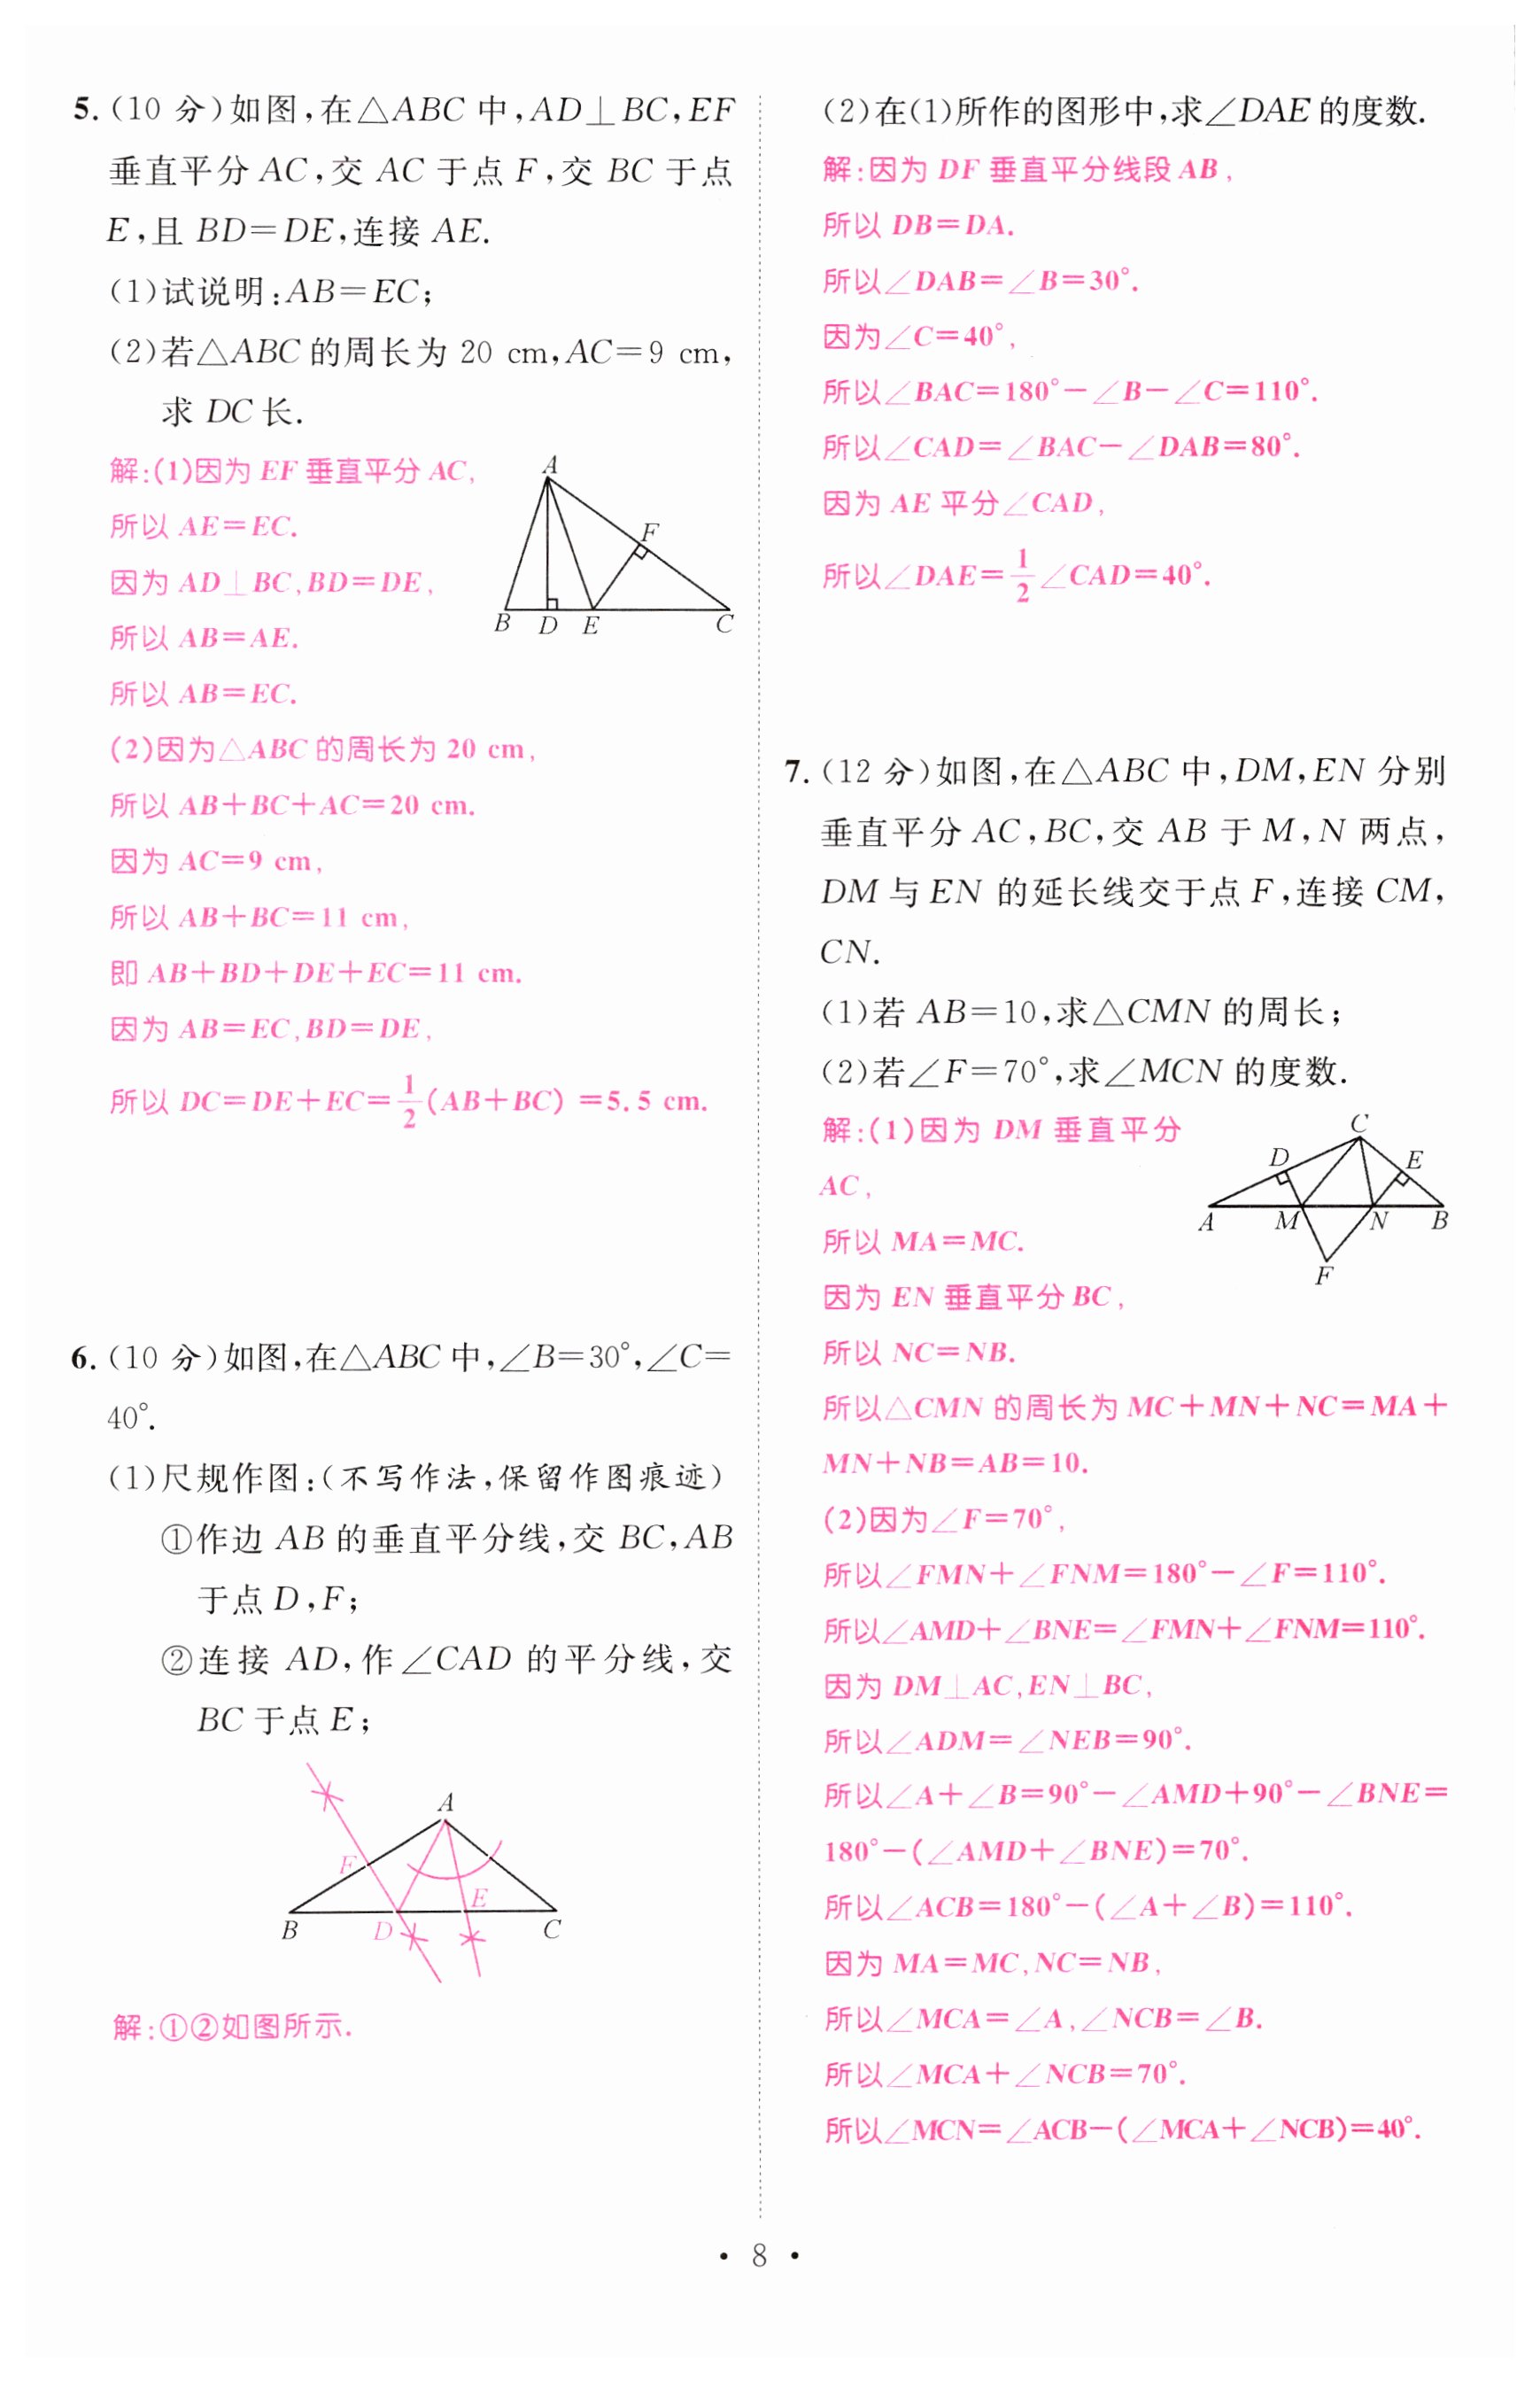 5.(10 分)如图,在△ABC 中,AD⊥BC,EF
垂直平分 AC,交 AC 于点 F,交 BC 于点
E,且 BD=DE,连接 AE.
(1)试说明:AB=EC;
(2)若△ABC 的周长为 20 cm,AC=9 cm,
求 DC 长.
解:(1)因为 EF 垂直平分 AC,
所以 AE=EC.
因为 AD⊥BC,BD=DE,
所以 AB=AE.
所以 AB=EC.
A
F
B D E C
(2)因为△ABC 的周长为 20 cm,
所以 AB+BC+AC=20 cm.
因为 AC=9 cm,
所以 AB+BC=11 cm,
即 AB+BD+DE+EC=11 cm.
因为 AB=EC,BD=DE,
所以 DC=DE+EC=1/2(AB+BC)=5.5 cm.
6.(10 分)如图,在△ABC 中,∠B=30°,∠C=
40°.
(1)尺规作图:(不写作法,保留作图痕迹)
①作边 AB 的垂直平分线,交 BC,AB
于点 D,F;
②连接 AD,作∠CAD 的平分线,交
BC 于点 E;
A
F
E
B D C
解:①②如图所示.
(2)在(1)所作的图形中,求∠DAE 的度数.
解:因为 DF 垂直平分线段 AB,
所以 DB=DA.
所以∠DAB=∠B=30°.
因为∠C=40°,
所以∠BAC=180°-∠B-∠C=110°.
所以∠CAD=∠BAC-∠DAB=80°.
因为 AE 平分∠CAD,
所以∠DAE=1/2∠CAD=40°.
7.(12 分)如图,在△ABC 中,DM,EN 分别
垂直平分 AC,BC,交 AB 于 M,N 两点,
DM 与 EN 的延长线交于点 F,连接 CM,
CN.
(1)若 AB=10,求△CMN 的周长;
(2)若∠F=70°,求∠MCN 的度数.
解:(1)因为 DM 垂直平分
AC,
所以 MA=MC.
因为 EN 垂直平分 BC,
C
D E
A M N B
F
所以 NC=NB.
所以△CMN 的周长为 MC+MN+NC=MA+
MN+NB=AB=10.
(2)因为∠F=70°,
所以∠FMN+∠FNM=180°-∠F=110°.
所以∠AMD+∠BNE=∠FMN+∠FNM=110°.
因为 DM⊥AC,EN⊥BC,
所以∠ADM=∠NEB=90°.
所以∠A+∠B=90°-∠AMD+90°-∠BNE=
180°-(∠AMD+∠BNE)=70°.
所以∠ACB=180°-(∠A+∠B)=110°.
因为 MA=MC,NC=NB,
所以∠MCA=∠A,∠NCB=∠B.
所以∠MCA+∠NCB=70°.
所以∠MCN=∠ACB-(∠MCA+∠NCB)=40°.
• 8 •